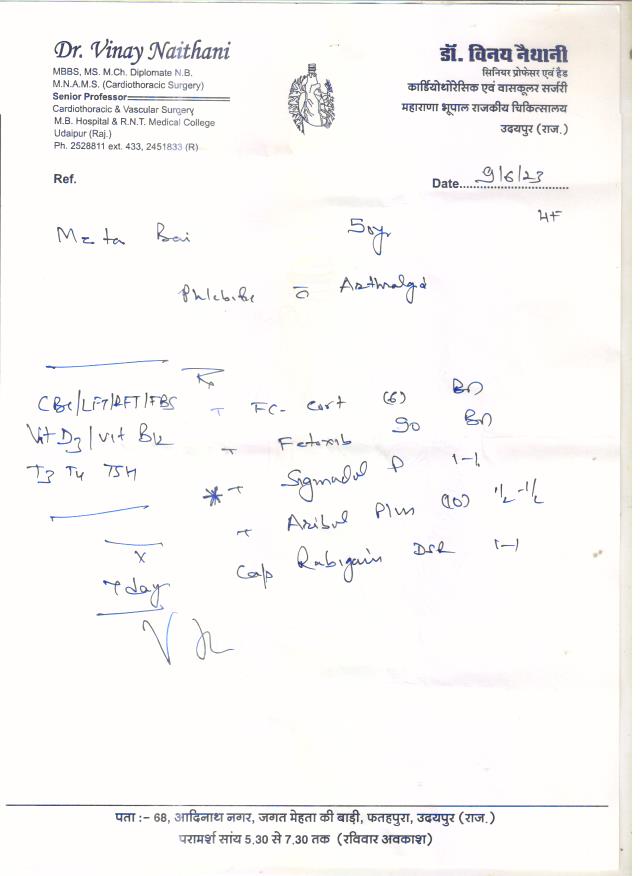 Dr. Vinay Naithani
MBBS, MS. M.Ch. Diplomate N.B.
M.N.A.M.S. (Cardiothoracic Surgery)
Senior Professor
Cardiothoracic & Vascular Surgery
M.B. Hospital & R.N.T. Medical College
Udaipur (Raj.)
Ph. 2528811 ext. 433, 2451833 (R)
डॉ. विनय नैथानी
सिनियर प्रोफेसर एवं हैड
कार्डियोथोरेसिक एवं वासकूलर सर्जरी
महाराणा भूपाल राजकीय चिकित्सालय
उदयपुर (राज.)
Ref.
Date 9/6/23
Bai 50yr
Arthralgia
Rx
CBC/LFT/RFT/FBS
Vit D3/Vit B12
T3 T4 TSH
T FC- Cort (6) BD
T Fetoxib 90 BD
* T Sigmadol P 1-1
T Plus (10) 1/2-1/2
Cap DSR 1-1
x
7 day
पता :– 68, आदिनाथ नगर, जगत मेहता की बाड़ी, फतहपुरा, उदयपुर (राज.)
परामर्श सांय 5.30 से 7.30 तक (रविवार अवकाश)